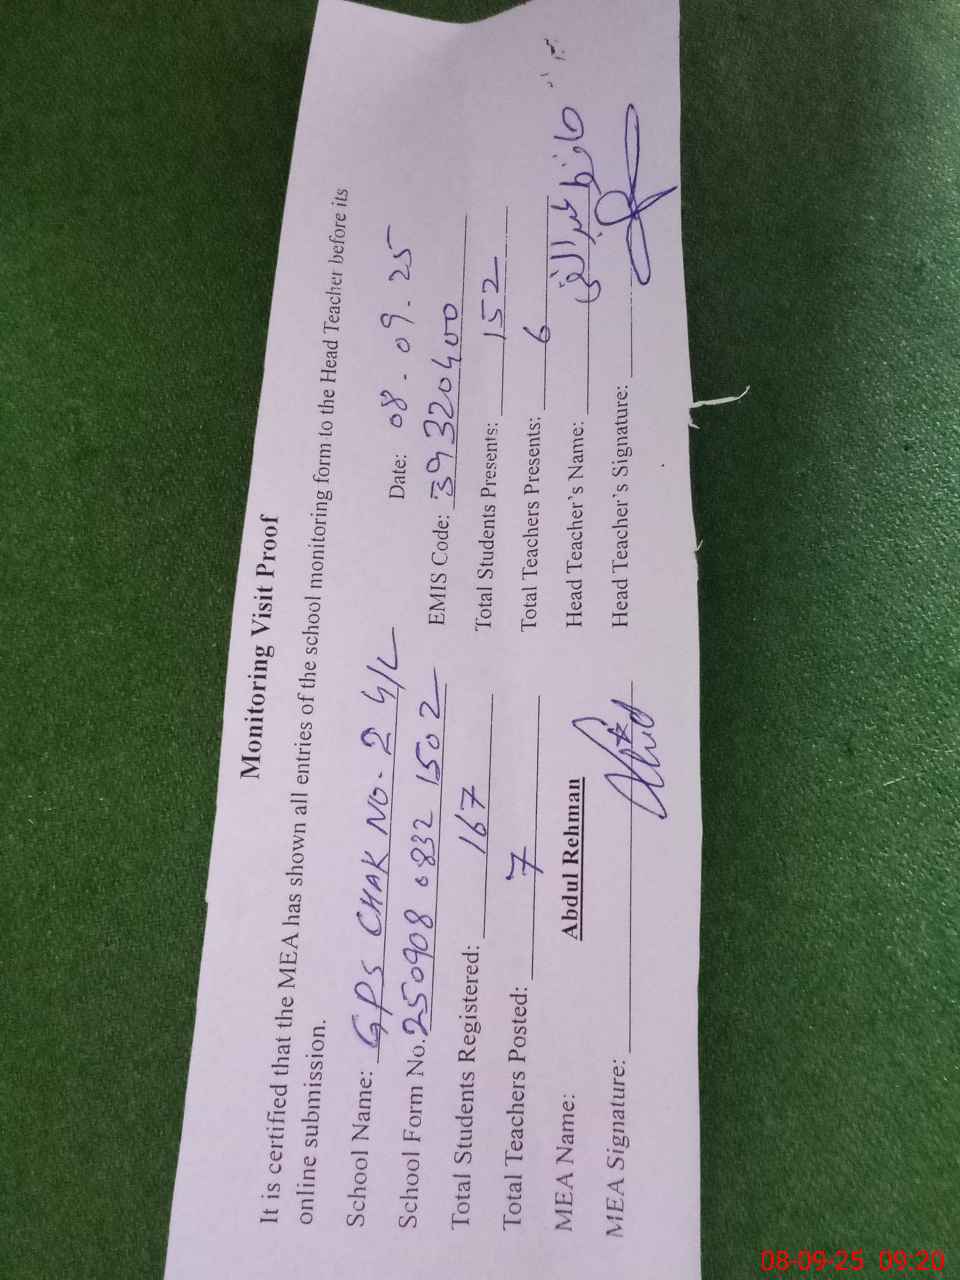 Monitoring Visit Proof
It is certified that the MEA has shown all entries of the school monitoring form to the Head Teacher before its
online submission.
School Name: GPS CHAK NO. 2 4/L Date: 08-09-25
School Form No. 250908 0832 1502 EMIS Code: 39320400
Total Students Registered: 167 Total Students Presents: 152
Total Teachers Posted: 7 Total Teachers Presents: 6
MEA Name: Abdul Rehman Head Teacher's Name: حافظ عبدالغنی
MEA Signature: Head Teacher's Signature:
08-09-25 09:20